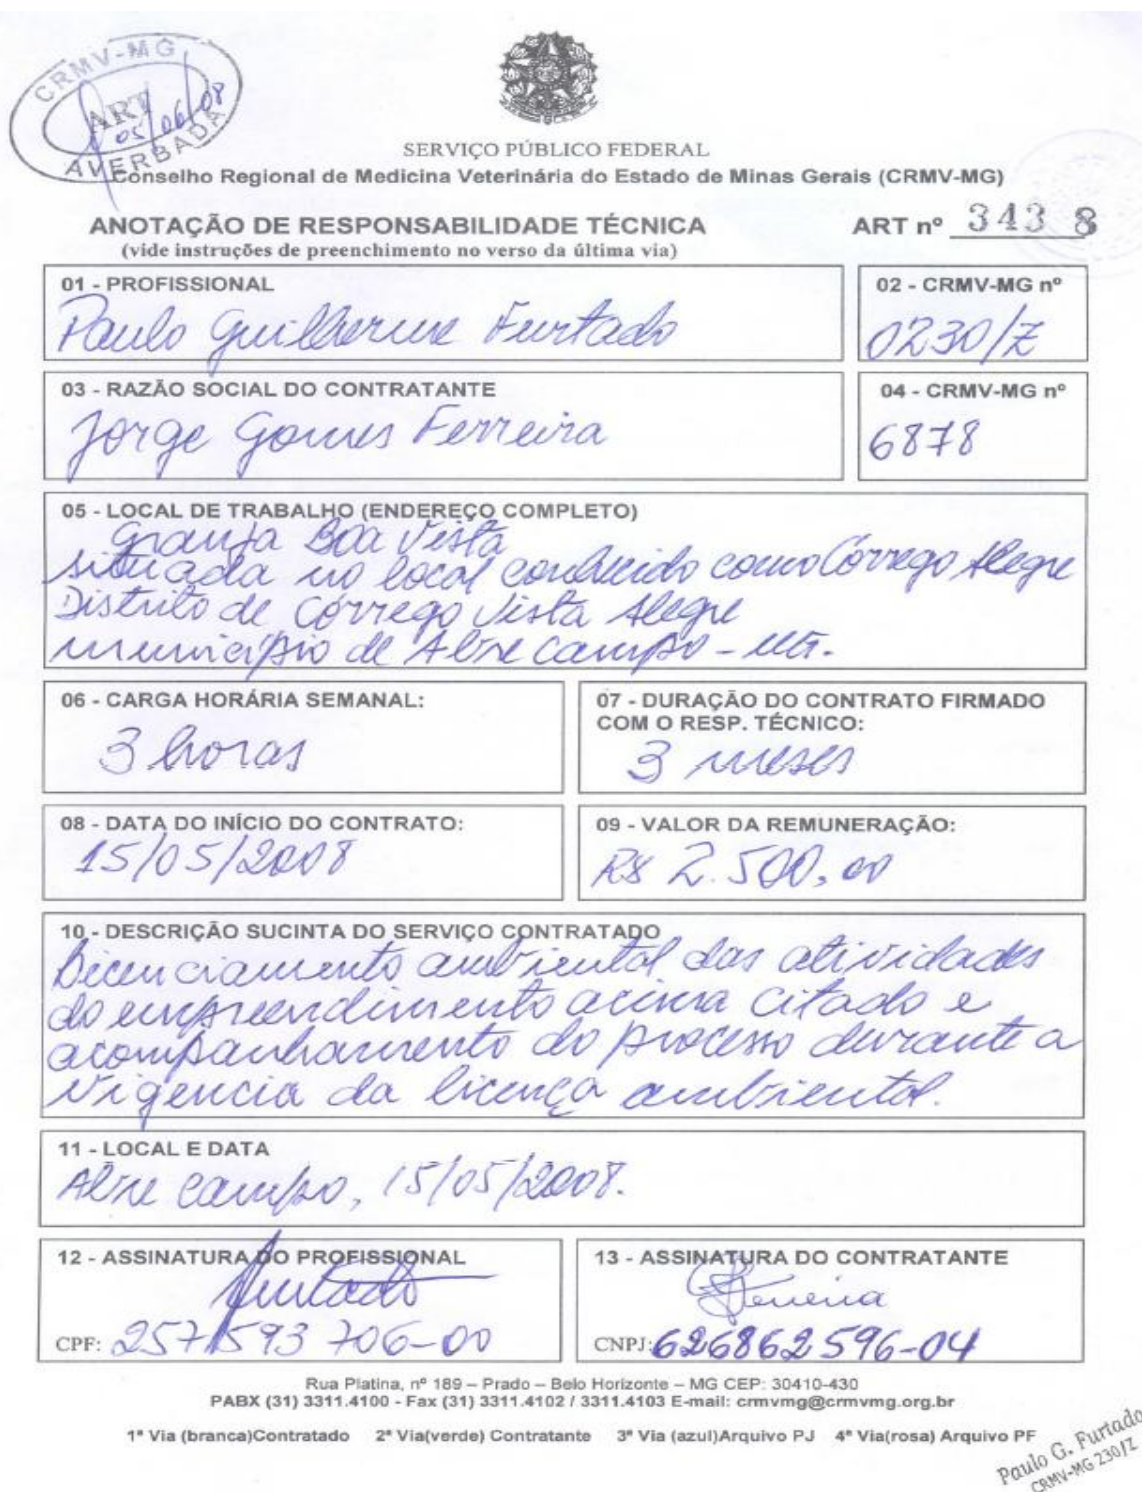 CRMV-MG
ART
05/06/08
AVERBADA
SERVIÇO PÚBLICO FEDERAL
Conselho Regional de Medicina Veterinária do Estado de Minas Gerais (CRMV-MG)
ANOTAÇÃO DE RESPONSABILIDADE TÉCNICA
(vide instruções de preenchimento no verso da última via)
ART nº 343 8
01 - PROFISSIONAL
Paulo Guilherme Furtado
02 - CRMV-MG nº
0230/Z
03 - RAZÃO SOCIAL DO CONTRATANTE
Jorge Gomes Ferreira
04 - CRMV-MG nº
6878
05 - LOCAL DE TRABALHO (ENDEREÇO COMPLETO)
Granja Boa Vista
situada no local conhecido como Córrego Alegre
Distrito de Córrego Vista Alegre
município de Abre Campo - MG.
06 - CARGA HORÁRIA SEMANAL:
3 horas
07 - DURAÇÃO DO CONTRATO FIRMADO
COM O RESP. TÉCNICO:
3 meses
08 - DATA DO INÍCIO DO CONTRATO:
15/05/2008
09 - VALOR DA REMUNERAÇÃO:
R$ 2.500,00
10 - DESCRIÇÃO SUCINTA DO SERVIÇO CONTRATADO
Licenciamento ambiental das atividades
do empreendimento acima citado e
acompanhamento do processo durante a
vigencia da licença ambiental.
11 - LOCAL E DATA
Abre Campo, 15/05/2008.
12 - ASSINATURA DO PROFISSIONAL
Furtado
CPF: 257 593 706-00
13 - ASSINATURA DO CONTRATANTE
Ferreira
CNPJ: 626862596-04
Rua Platina, nº 189 – Prado – Belo Horizonte – MG CEP: 30410-430
PABX (31) 3311.4100 - Fax (31) 3311.4102 / 3311.4103 E-mail: crmvmg@crmvmg.org.br
1ª Via (branca)Contratado 2ª Via(verde) Contratante 3ª Via (azul)Arquivo PJ 4ª Via(rosa) Arquivo PF
Paulo G. Furtado
CRMV-MG 230/Z